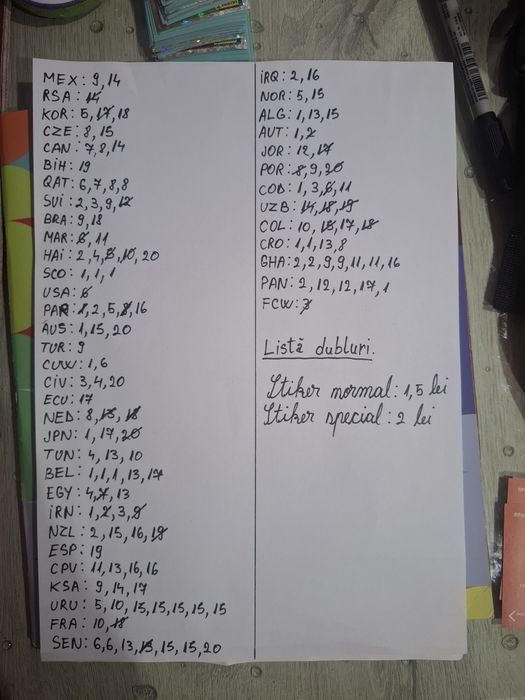 MEX: 9,14
RSA: 14
KOR: 5,17,18
CZE: 8,15
CAN: 7,8,14
BiH: 19
QAT: 6,7,8,8
SUi: 2,3,9,12
BRA: 9,18
MAR: 6,11
HAi: 2,4,5,10,20
SCO: 1,1,1
USA: 6
PAR: 1,2,5,8,16
AUS: 1,15,20
TUR: 9
CUW: 1,6
CiV: 3,4,20
ECU: 17
NED: 8,13,18
JPN: 1,17,20
TUN: 4,13,10
BEL: 1,1,1,13,17
EGY: 4,7,13
iRN: 1,2,3,9
NZL: 2,15,16,19
ESP: 19
CPV: 11,13,16,16
KSA: 9,14,17
URU: 5,10,15,15,15,15,15
FRA: 10,18
SEN: 6,6,13,15,15,15,20
iRQ: 2,16
NOR: 5,15
ALG: 1,13,15
AUT: 1,2
JOR: 12,17
POR: 8,9,20
COD: 1,3,6,11
UZB: 14,18,19
COL: 10,16,17,18
CRO: 1,1,13,8
GHA: 2,2,9,9,11,11,16
PAN: 2,12,12,17,1
FCW: 3
Listă dubluri.
Stiker normal: 1,5 lei
Stiker special: 2 lei